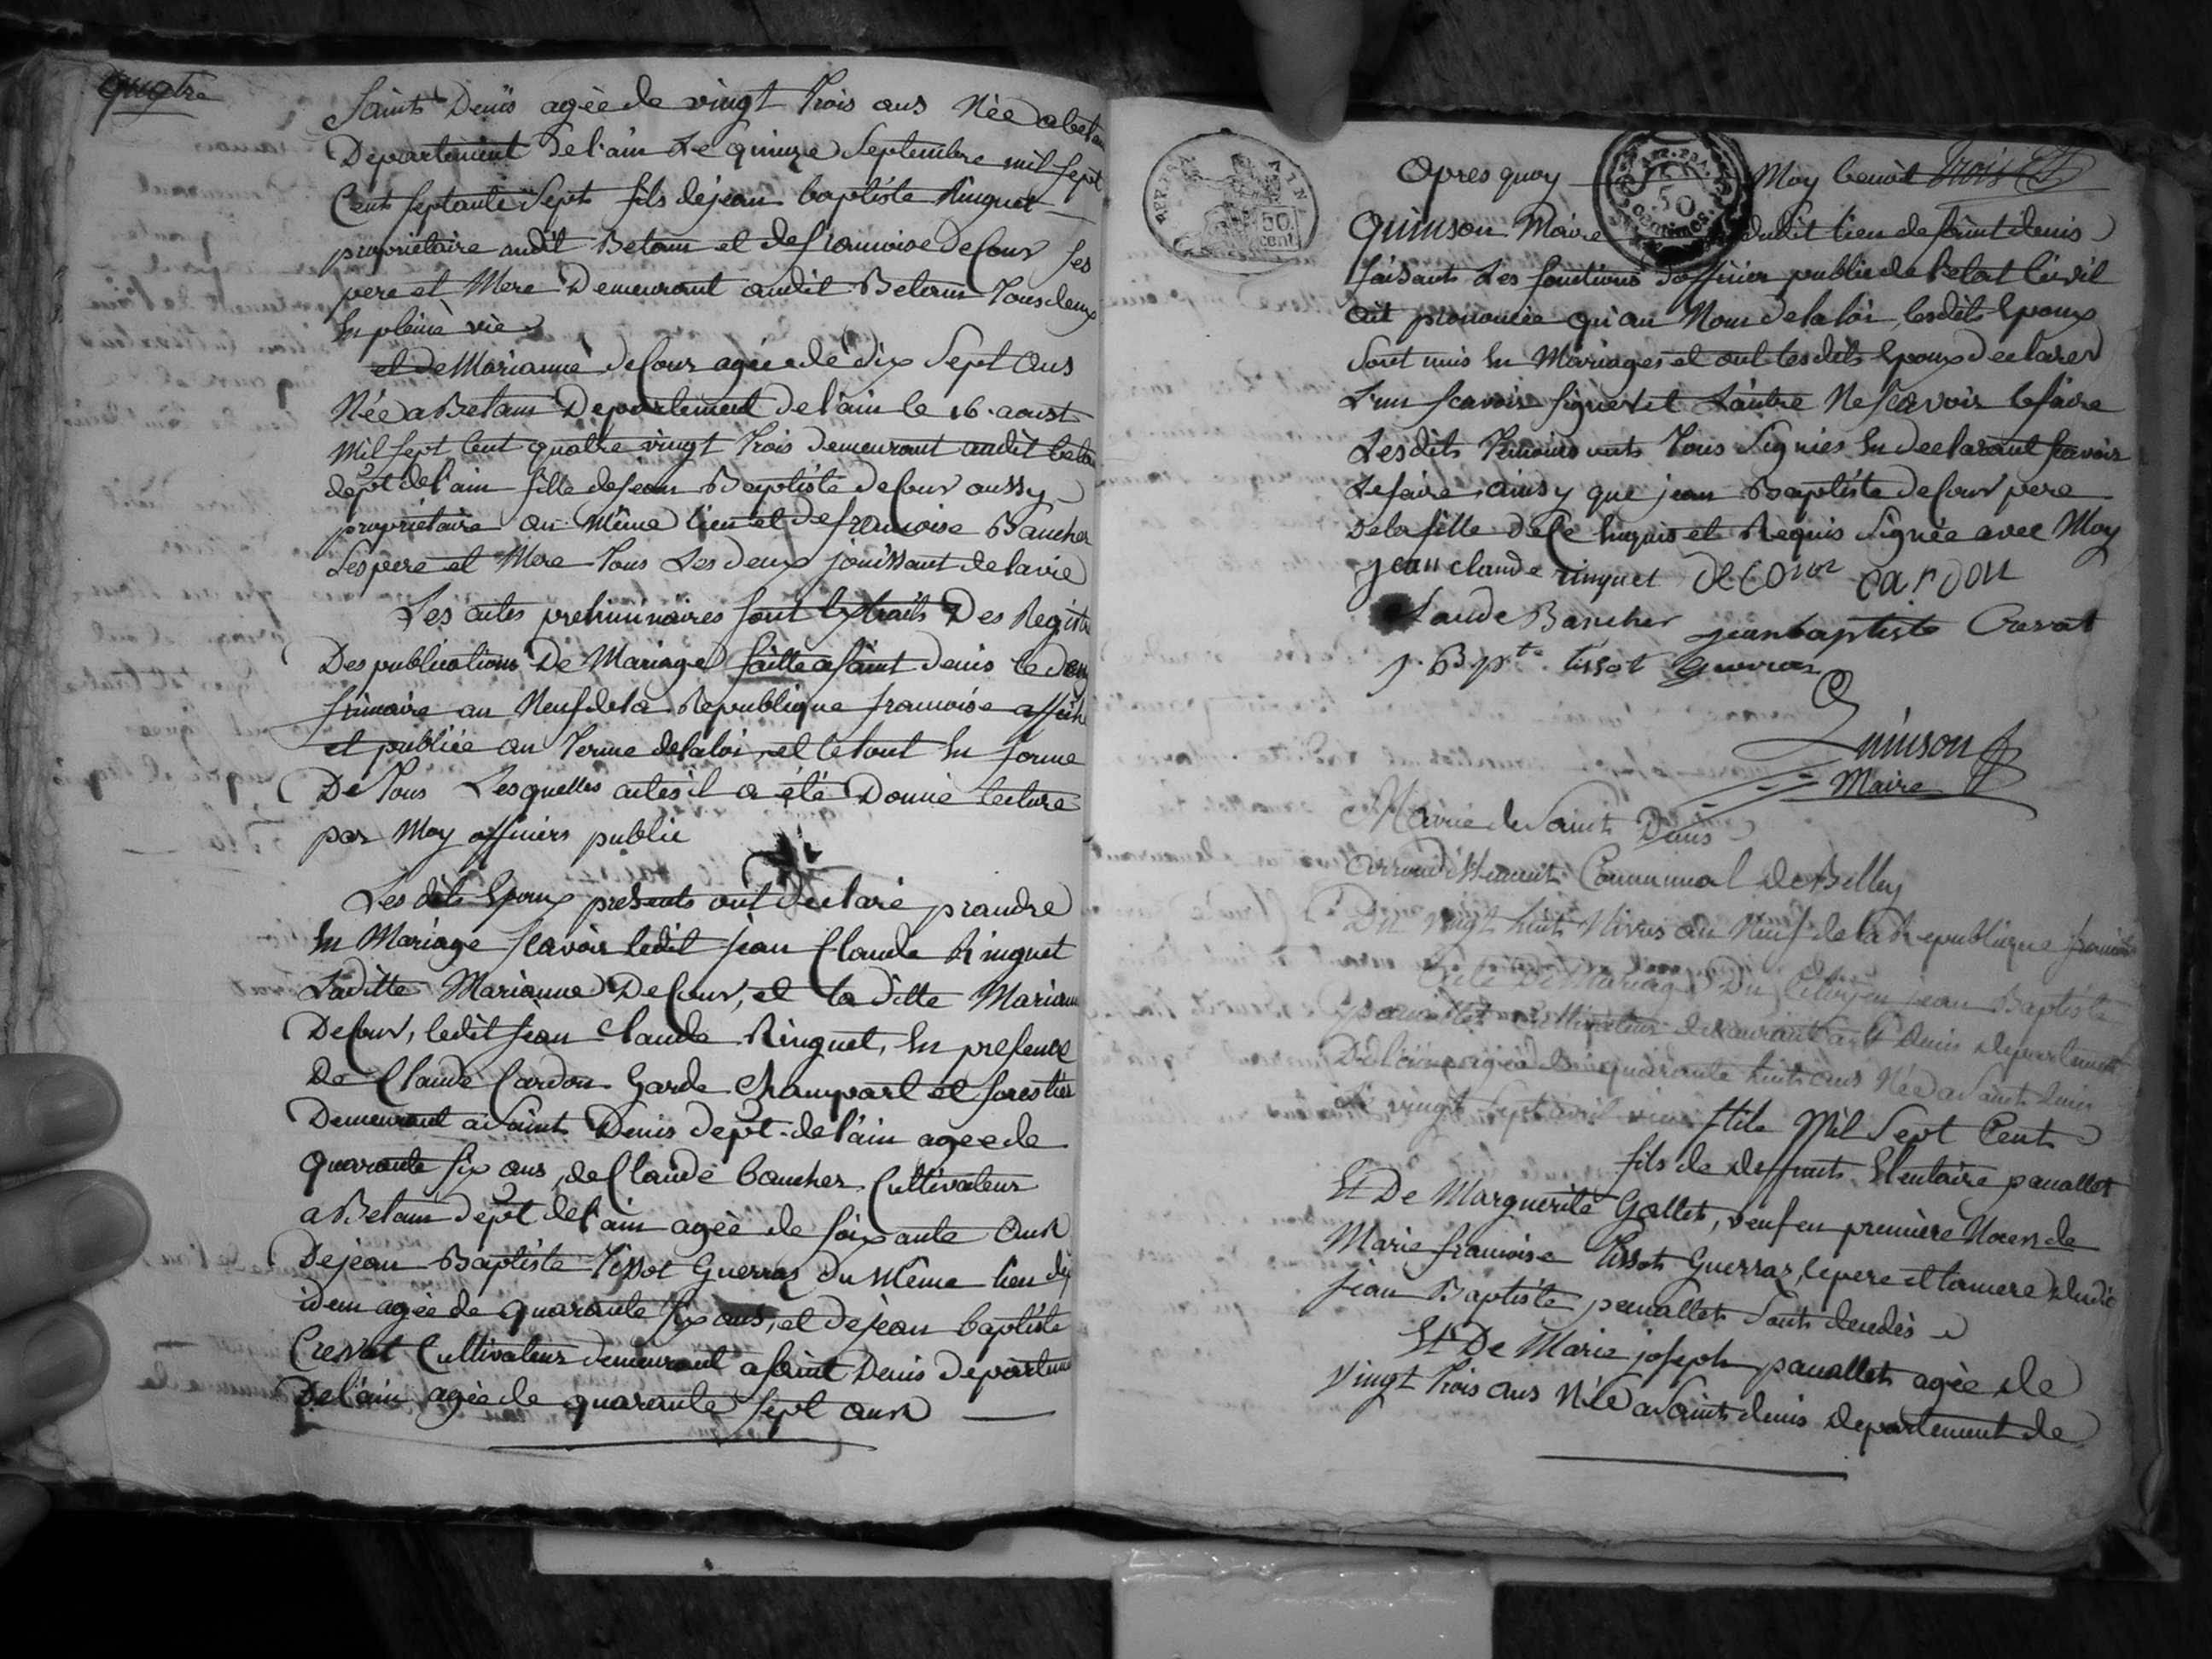 quatre
Saint Denis agèe de vingt trois ans Née a betan
Departement de l'ain Le quinze Septembre mil sept
Cent septante Sept fils de jean baptiste Ringuet
proprietaire audit Betam et de francoise Decour ses
pere et Mere Demeurant audit Betam Tous deux
En pleine vie
et de Marianne decour agèe de dix Sept ans
Née a Betam Departement de l'ain le 16 aoust
Mil sept Cent quatre vingt trois demeurant audit betan
dept de l'ain fille de jean Baptiste decour aussy
proprietaire au même lieu et de francoise Baucher
Ses pere et Mere tous Les deux jouissant de la vie
Les actes preliminaires sont Extraits Des Registre
Des publications De Mariage faitte a saint denis le
frimaire an Neuf de la Republique francoise affich
et publiée au terme de la loi, et le tout En forme
De Tous Lesquelles actes il a été Donné lecture
par Moy officiers public
Les dits Epoux presents ont declaré prandre
En Mariage scavoir ledit jean Claude Ringuet
Laditte Marianne Decour, et la ditte Mariann
Decour, ledit jean Claude Ringuet, En presence
de Claude Cardon Garde Champart et forestier
Demeurant a Saint Denis dept de l'ain agee de
quarante six ans, de Claude baucher Cultivateur
a Betam dept de l'ain agèe de soixante ans
De jean Baptiste Tissot Guerraz du même lieu
idem agèe de quarante six ans, et de jean baptiste
Crevat Cultivateur demeurant a saint Denis departem
De l'ain agèe de quarante sept ans
Apres quoy Moy benoit trois
Quinson Maire dudit lieu de saint denis
faisant Les fonctions d'officier public de l'etat Civil
ait prononcée qu'au Nom de la loi, lesdits Epoux
sont unis En Mariages et ont lesdits Epoux declarer
L'un scavoir signer et L'autre Ne scavoir le faire
Lesdits Temoins onts Tous Signies En declarant scavoir
Le faire, ainsy que jean Baptiste decour pere
De la fille de Ce Enquis et Requis signée avec Moy
jean claude ringuet decour cardon
Claude Baucher jean baptiste Crevat
j. Bpte tissot guerraz
Quinson
Maire
Mairie de Saint Denis
arrondissement Communal de Belley
Du vingt huit Nivos an Neuf de la Republique francois
acte De Mariage Du Citoyen jean Baptiste
panallet Cultivateur demeurant a St Denis departement
De l'ain agèe de quarante huit ans Née a Saint denis
Le vingt sept avril vieux Stile Mil Sept Cent
fils de deffunts panallet
Et De Marguerite Gallet, veuf en premiere Noces de
Marie francoise Tissot Guerraz, le pere et la mere dudit
jean Baptiste panallet Sont decedès
Et De Marie joseph panallet agèe de
Vingt trois ans Née a Saint denis Departement de